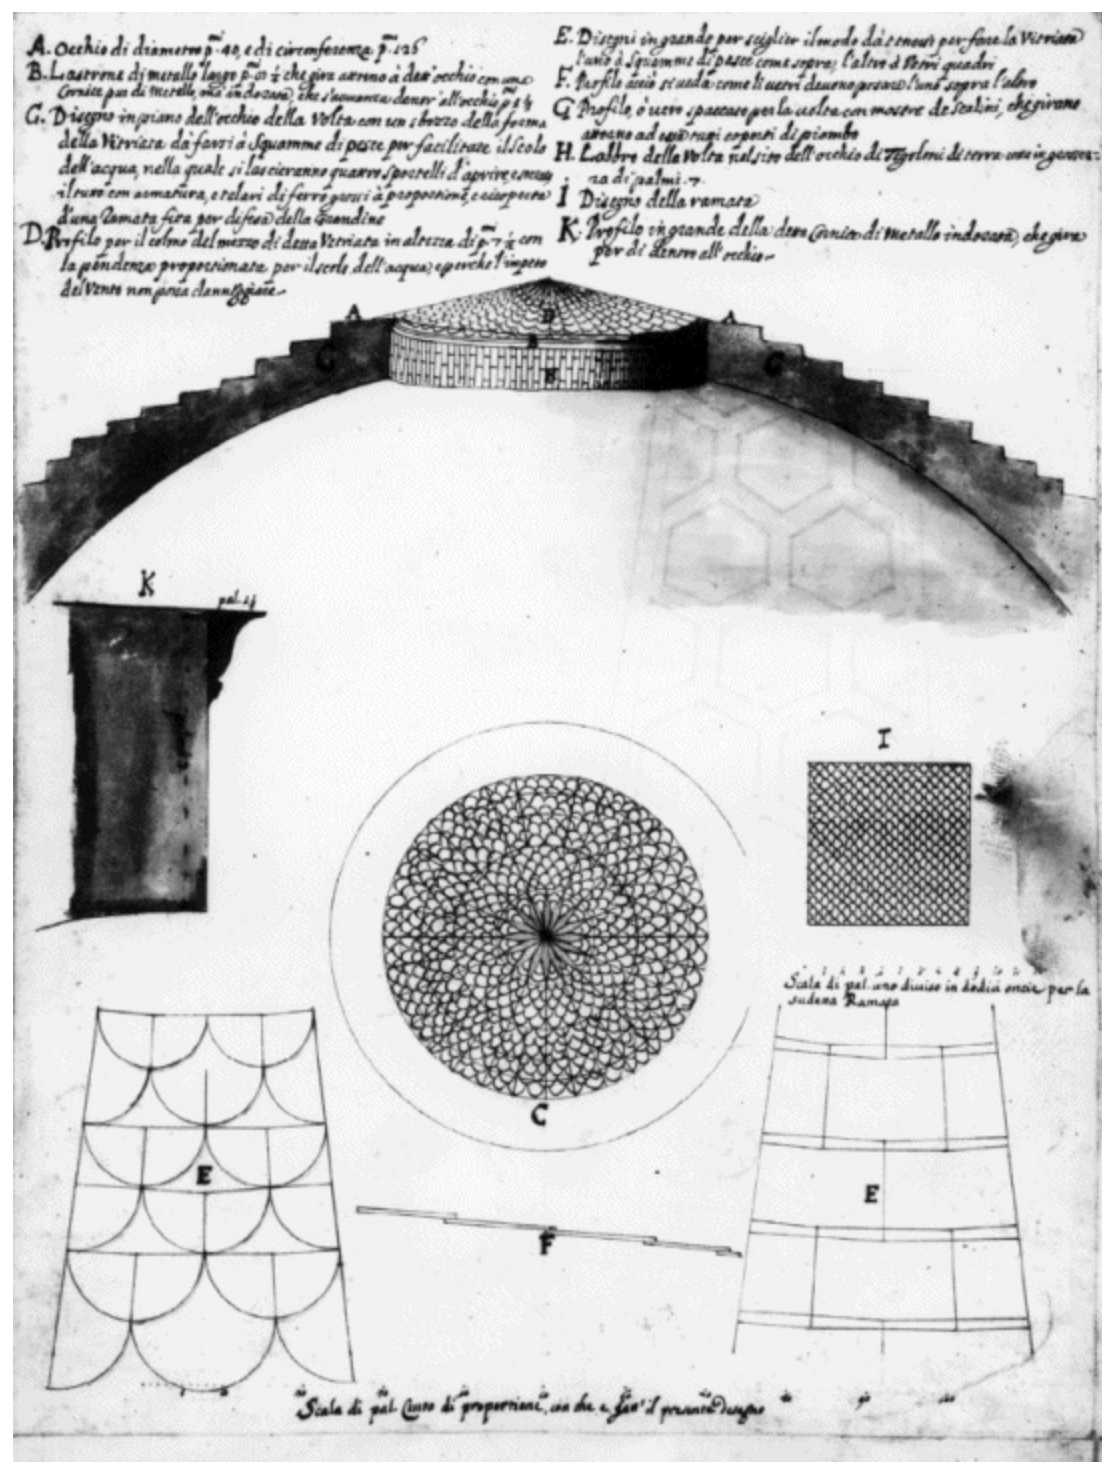 A. Occhio di diametro p.mi 40, e di circonferenza p.mi 126
B. Lastrone di metallo largo p.mi che gira attorno à dett' occhio con una
Cornice pur di metallo, che s'avanza dentr' all'occhio p.mi
C. Disegno in piano dell'occhio della Volta con un sbozzo della forma
della Vitriata da farsi à Squamme di pesce per facilitare il scolo
dell'acqua, nella quale si lascieranno quattro sportelli d'aprire, e
il tutto con armatura, e telari di ferro grossi à proportione, e
d'una Ramata fitta per difesa della Grandine
D. Profilo per il colmo del mezzo di detta Vetriata in altezza di p.mi 7 ½ con
la pendenza proportionata per il scolo dell'acqua; e perche l'impeto
del Vento non possa danneggiare
E. Disegni in grande per sciglier il modo da tenersi per fare la Vitriata
l'uno à Squamme di pesce come sopra; l'altro à Vetri quadri
F. Profilo acciò si veda come li vetri devono posare l'uno sopra l'altro
G. Profilo, ò vero spaccato per la volta con mostre de Scalini, che girano
attorno ad coperti di piombo
H. Labbro della Volta nel sito dell'occhio di Tegolini di terra
di palmi 7
I Disegno della ramata
K. Profilo in grande della detta Cornice di metallo indorata, che gira
per di dentro all'occhio
A
D
A
B
G
G
H
K
pal.
I
Scala di pal. uno diviso in dodici oncie per la
sudetta Ramata
C
E
E
F
Scala di pal. Cento di proportione, con che e fatt' il presente disegno